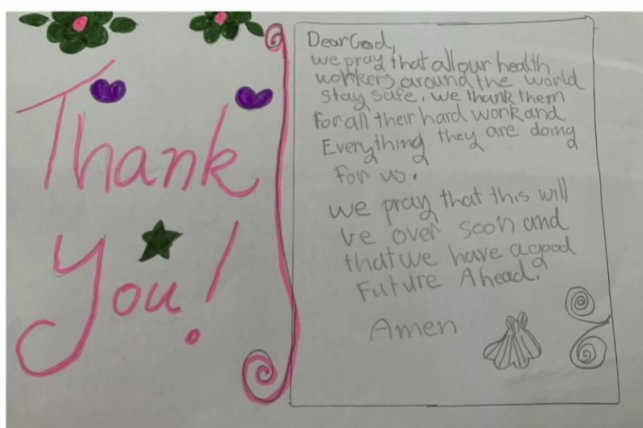 Thank
You!
Dear God,
we pray that all our health
workers around the world
stay safe. we thank them
For all their hard work and
Everything they are doing
for us.
we pray that this will
be over soon and
that we have a good
Future Ahead.
Amen